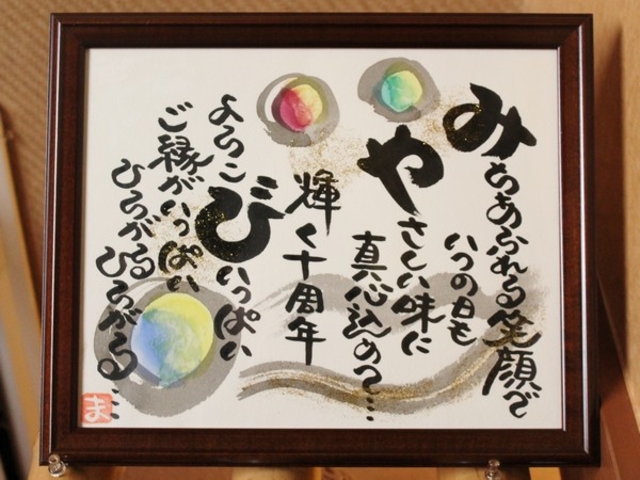 みちあふれる笑顔で
いつの日も
やさしい味に
真心込めて…
輝く十周年
よろこびいっぱい
ご縁がいっぱい
ひろがるひろがる…
ま